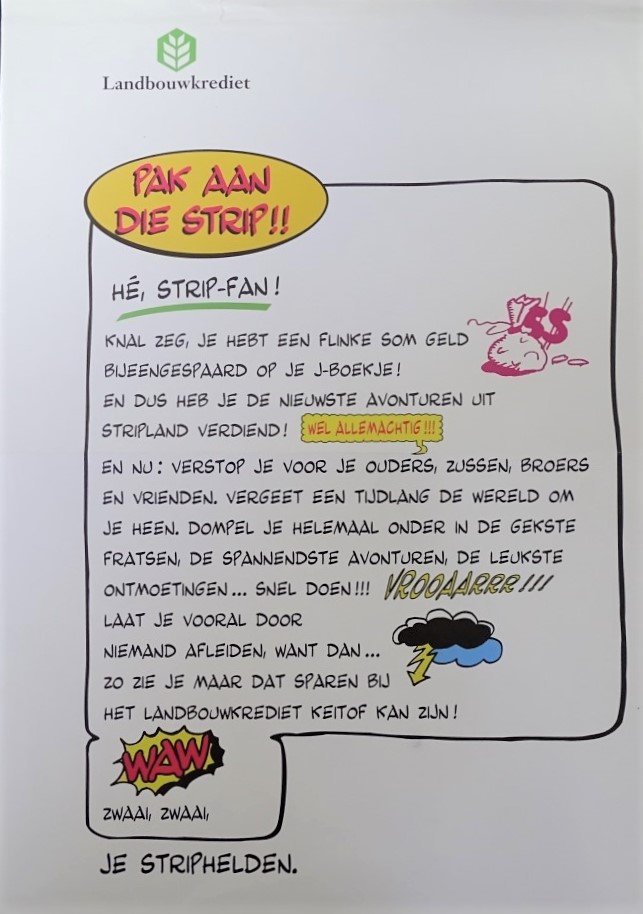 Landbouwkrediet
PAK AAN
DIE STRIP!!
HÉ, STRIP-FAN!
KNAL ZEG, JE HEBT EEN FLINKE SOM GELD
BIJEENGESPAARD OP JE J-BOEKJE!
EN DUS HEB JE DE NIEUWSTE AVONTUREN UIT
STRIPLAND VERDIEND! WEL ALLEMACHTIG!!!
EN NU: VERSTOP JE VOOR JE OUDERS, ZUSSEN, BROERS
EN VRIENDEN. VERGEET EEN TIJDLANG DE WERELD OM
JE HEEN. DOMPEL JE HELEMAAL ONDER IN DE GEKSTE
FRATSEN, DE SPANNENDSTE AVONTUREN, DE LEUKSTE
ONTMOETINGEN... SNEL DOEN!!! VROOAARRR!!!
LAAT JE VOORAL DOOR
NIEMAND AFLEIDEN, WANT DAN...
ZO ZIE JE MAAR DAT SPAREN BIJ
HET LANDBOUWKREDIET KEITOF KAN ZIJN!
WAW
ZWAAI, ZWAAI,
JE STRIPHELDEN.